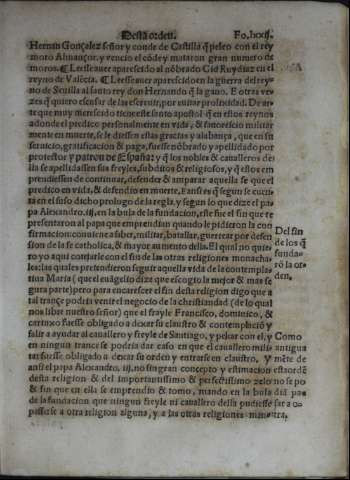 Desta orden. Fo. lxxij.
Hernan Gonçalez señor y conde de Castilla q̃ peleo con el rey
moro Almançor, y vencio el cãde y mataron gran numero de
moros. ¶ Leesse auer aparescido al nõbrado Cid Ruydiaz en el
reyno de Valẽcia. ¶ Leesse auer aparescido en la guerra del rey-
no de Seuilla al santo rey don Hernando q̃ la gano. E otras ve-
zes q̃ quiero escusar de las escreuir, por euitar prolixidad. De ar-
te que muy merescido tiene este sancto apostol q̃ en estos reynos
adonde el predico personalmente en vida, & fauorescio militar
mente en muerte, se le diessen estas gracias y alabança, que en su
seruicio, gratificacion & paga, fuesse nõbrado y apellidado por
protector y patron de España: y q̃ los nobles & caualleros de-
lla se apellidassen sus freyles, subditos & religiosos, y q̃ estos em
prendiessen de continuar, defender & amparar aquella se que el
predico en vida, & defendio en muerte. E ansi es q̃ segun se cuen-
ta en el suso dicho prologo de la regla, y segun lo que dize el pa
pa Alexandro .iij. en la bula de la fundacion, este fue el fin que re
presentaron al papa que emprendian quando le pidieron la con
firmacion: conuiene a saber, militar, batallar, guerrear por defen
sion de la fe catholica, & mayor aumento della. El qual no quie-
ro yo aqui conjarle con el fin de las otras religiones monacha-
les: las quales pretendieron seguir aquella vida de la contempla
tiua Maria (que el euãgelio dize que escogio la mejor & mas se
gura parte) pero para encarescer el fin desta religion digo que a
tal trançe podria venir el negocio de la christiandad (de lo qual
nos libre nuestro señor) que el frayle Francisco, dominico, &
cartuxo fuesse obligado a dexar su claustro & contemplaciõ y
salir a ayudar al cauallero y freyle de Santiago, y pelear con el, y
en ningun trance se podria dar caso en que el cauallero mili-
tar fuesse obligado a dexar su orden y entrarse en claustro. Y
ansi el papa Alexandro .iij. no sin gran concepto y estimacion
desta religion & del importantissimo & perfectissimo zelo
& fin que en ella se emprendio & tomo, mando en la bula
de la fundacion que ningun freyle ni cauallero della pudiesse
passar se a otra religion alguna, y a las otras religiones man-
Del fin
de los q̃
funda-
rõ la or
den.
Como
antigua
mẽte de
esta ordẽ
no se po
diã pas
sar a o-
tra.